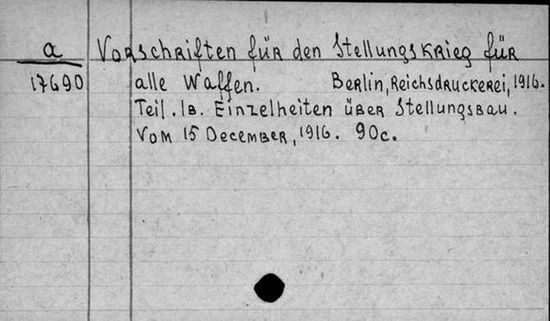 a Vorschriften für den Stellungskrieg für
17690 alle Waffen. Berlin, Reichsdruckerei, 1916.
Teil. 1B. Einzelheiten über Stellungsbau.
Vom 15 December, 1916. 90c.